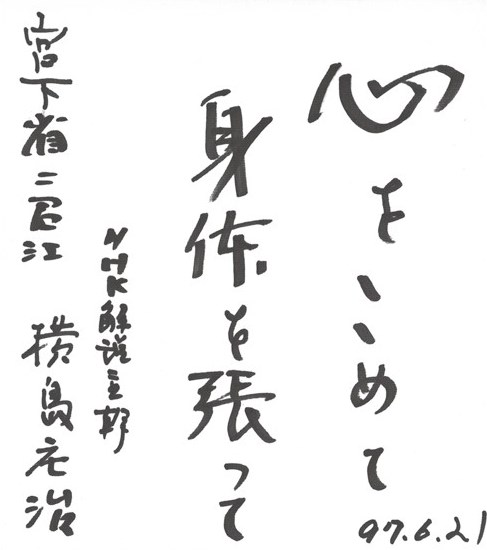 心をこめて
97.6.21
身体を張って
NHK解説主幹
宮下 横島庄治